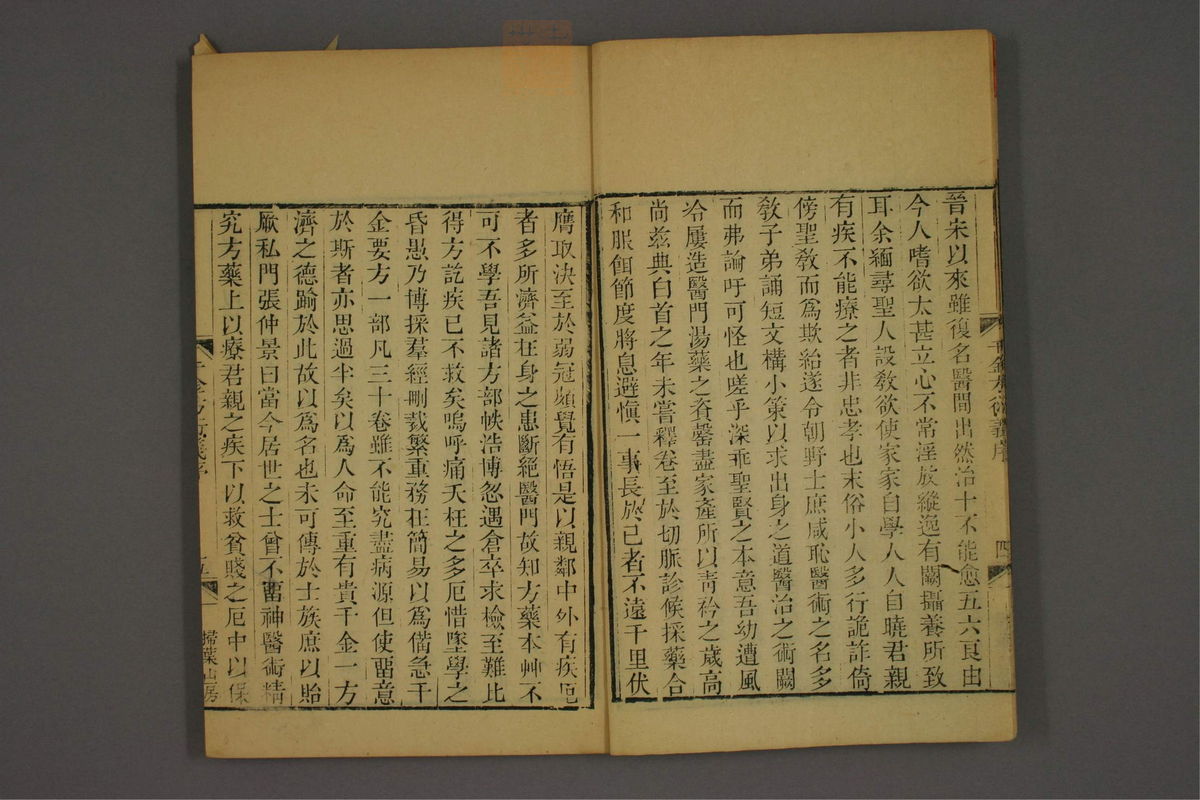 晉宋以來雖復名醫間出然治十不能愈五六良由
今人嗜欲太甚立心不常淫放縱逸有闕攝養所致
耳余緬尋聖人設敎欲使家家自學人人自曉君親
有疾不能療之者非忠孝也末俗小人多行詭詐倚
傍聖敎而爲欺紿遂令朝野士庶咸恥醫術之名多
敎子弟誦短文構小策以求出身之道醫治之術闕
而弗論吁可怪也嗟乎深乖聖賢之本意吾幼遭風
冷屢造醫門湯藥之資罄盡家產所以靑衿之歲高
尚茲典白首之年未嘗釋卷至於切脈診候採藥合
和服餌節度將息避愼一事長於已者不遠千里伏
膺取決至於弱冠頗覺有悟是以親鄰中外有疾厄
者多所濟益在身之患斷絕醫門故知方藥本艸不
可不學吾見諸方部帙浩博忽遇倉卒求檢至難比
得方訖疾已不救矣嗚呼痛夭枉之多厄惜墜學之
昏愚乃博採羣經刪裁繁重務在簡易以爲備急千
金要方一部凡三十卷雖不能究盡病源但使畱意
於斯者亦思過半矣以爲人命至重有貴千金一方
濟之德踰於此故以爲名也未可傳於士族庶以貽
厥私門張仲景曰當今居世之士曾不畱神醫術精
究方藥上以療君親之疾下以救貧賤之厄中以保
千金方衍義序
五
掃葉山房